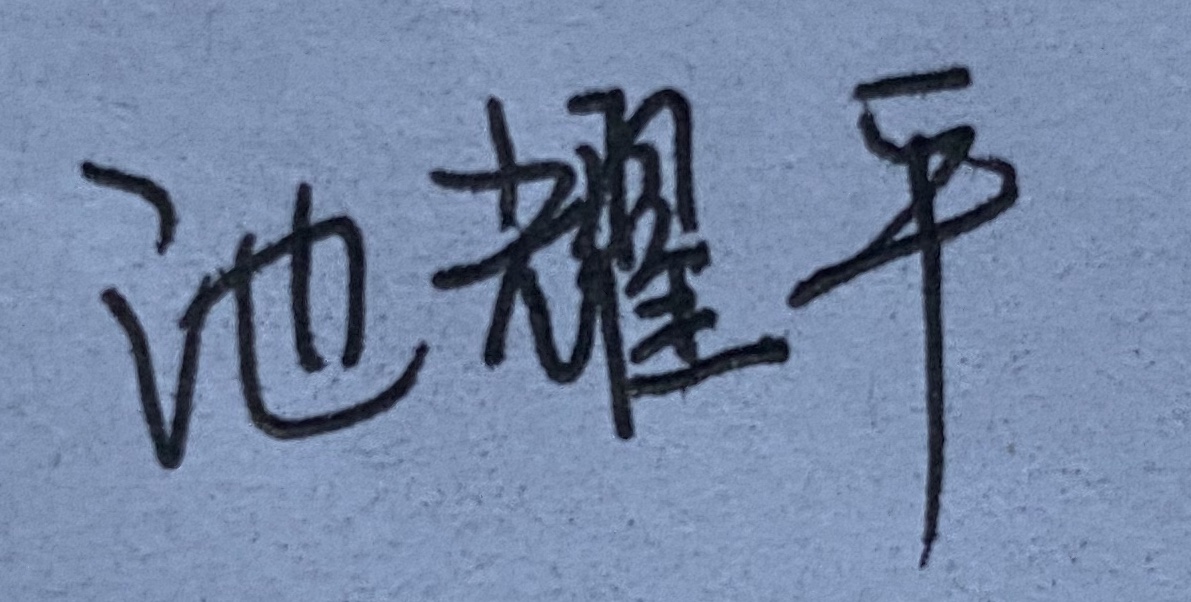 池耀平